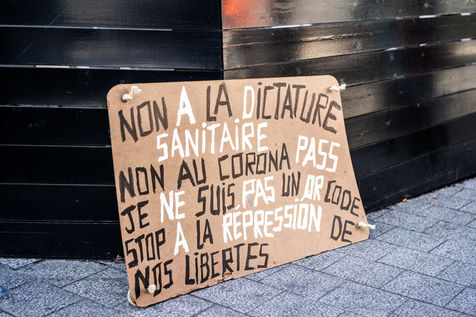 NON A LA DICTATURE
SANITAIRE
NON AU CORONA PASS
JE NE SUIS PAS UN QR CODE
STOP A LA RÉPRESSION DE
NOS LIBERTES